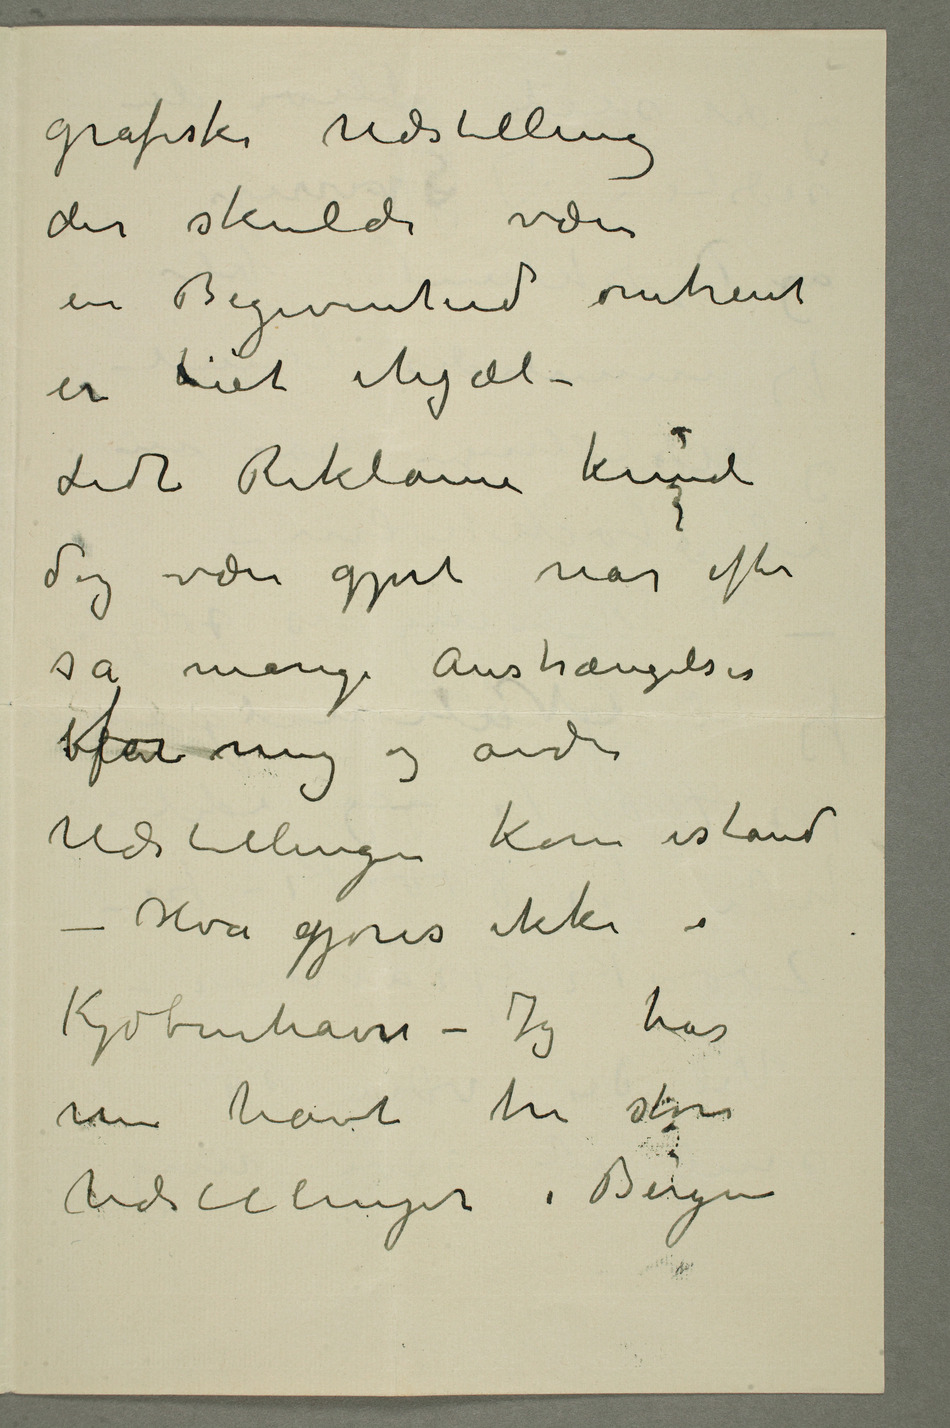 grafiske Udstilling
der skulde være
en Begivenhed omtrent
er tiet ihjæl –
Lidt Reklame kunde
dog være gjort når efter
så mange Anstrængelser
for mig og andre
Udstillingen kom istand
– Hva gjøres ikke i
Kjøbenhavn – Jeg har
nu havt tre store
Udstillinger i Bergen